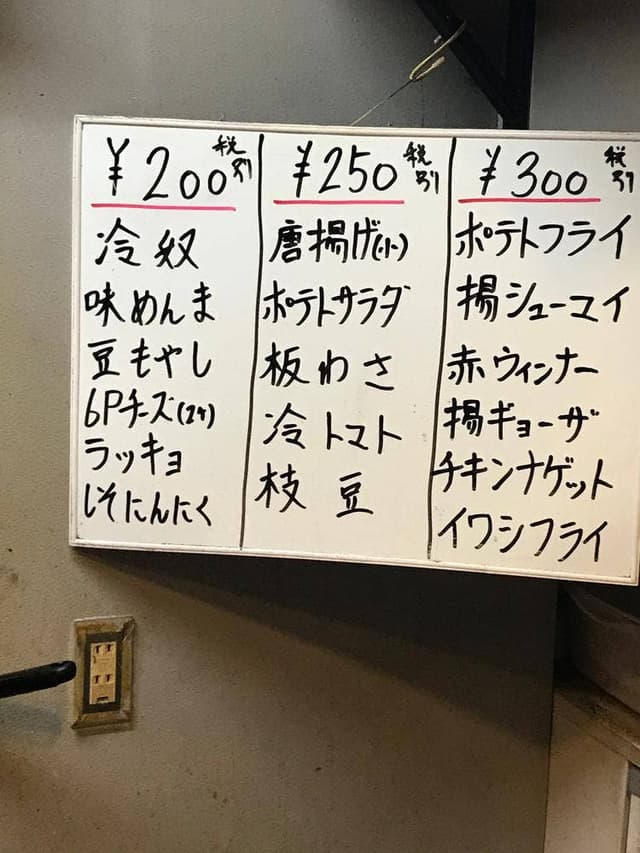 ¥200 税別
冷奴
味めんま
豆もやし
6Pチーズ(2ケ)
ラッキョ
しそにんにく
¥250 税別
唐揚げ(小)
ポテトサラダ
板わさ
冷トマト
枝豆
¥300 税別
ポテトフライ
揚シューマイ
赤ウィンナー
揚ギョーザ
チキンナゲット
イワシフライ